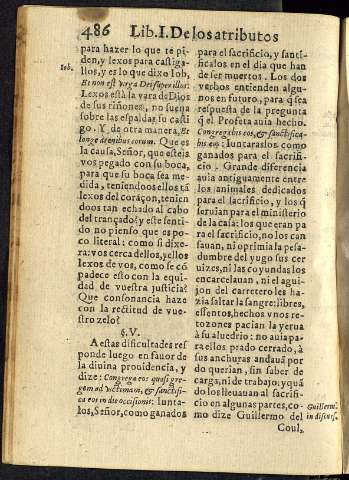 486 Lib. I. De los atributos
para hazer lo que te pi-
den, y lexos para castiga-
llos, y es lo que dixo Iob,
Iob.
Et non est virga Dei super illos:
Lexos està la vara de Dios
de sus riñones, no suena
sobre las espaldas su casti
go. Y de otra manera, Et
longe à renibus eorum. Que es
la causa, Señor, que esteis
vos pegado con su boca,
para que su boca sea me-
dida, teniendoos ellos tã
lexos del coraçon, tenien
doos tan echado al cabo
del trançado? y este senti-
do no pienso que es po-
co literal: como si dixe-
ra: vos cerca dellos, y ellos
lexos de vos, como se cõ
padece esto con la equi-
dad de vuestra justicia?
Que consonancia haze
con la rectitud de vues-
tro zelo?
§. V.
A estas dificultades res
ponde luego en fauor de
la diuina prouidencia, y
dize: Congrega eos quasi gre-
gem ad victimam, & sanctifi-
ca eos in die occisionis: Iunta-
los, Señor, como ganados
para el sacrificio, y santi-
ficalos en el dia que han
de ser muertos. Los dos
verbos entienden algu-
nos en futuro, para q̃ sea
respuesta de la pregunta
q̃ el Profeta auia hecho.
Congregabis eos, & sanctifica-
bis eos: Iuntaraslos como
ganados para el sacrifi-
cio. Grande diferencia
auia antiguamente entre
los animales dedicados
para el sacrificio, y los q̃
seruian para el ministerio
de la casa: los que eran pa
ra el sacrificio, no los can
sauan, ni oprimia la pesa-
dumbre del yugo sus cer
uizes, ni las coyundas los
encarcelauan, ni el agui-
jon del carretero les ha-
zia saltar la sangre: libres,
essentos, hechos vnos re-
tozones pacian la yerua
à su aluedrio: no auia pa-
ra ellos prado cerrado, à
sus anchuras andauã por
do querian, sin saber de
carga, ni de trabajo: y quã
do los lleuauan al sacrifi-
cio en algunas partes, co-
mo dize Guillermo del
Guillerm.
in discurs.
Coul.